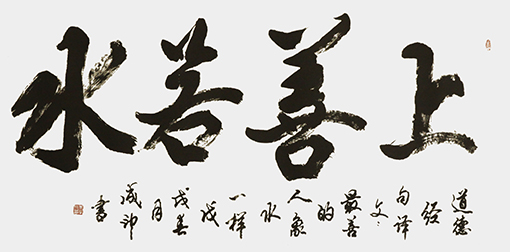 上善若水
道德
经
句译
文
最善
的
人象
水
一样
戊
戌春
月
书